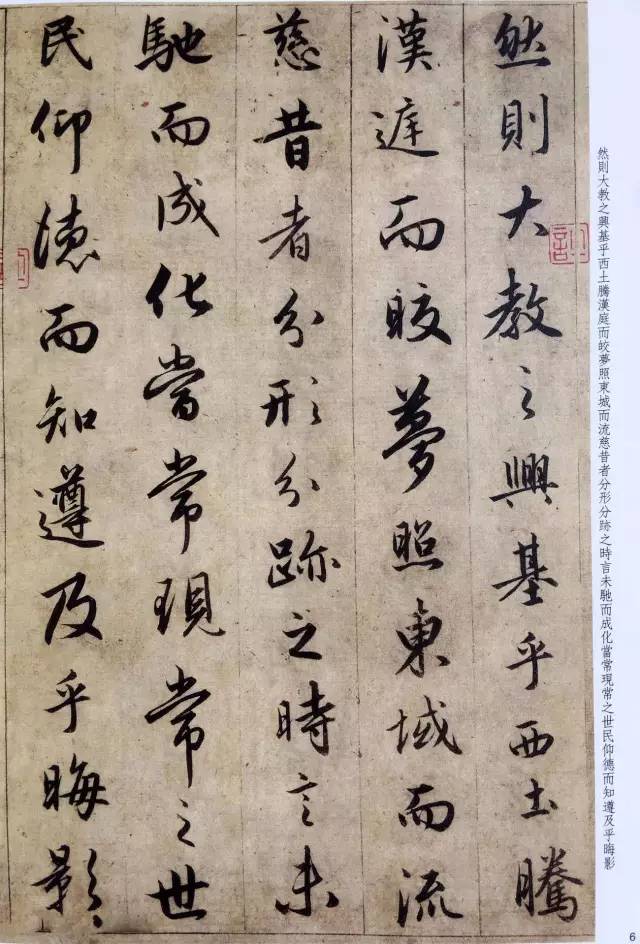 然則大教之興基乎西土騰
漢庭而皎夢照東域而流
慈昔者分形分跡之時言未
馳而成化當常現常之世
民仰德而知遵及乎晦影
然則大教之興基乎西土騰漢庭而皎夢照東城而流慈昔者分形分跡之時言未馳而成化當常現常之世民仰德而知遵及乎晦影
6